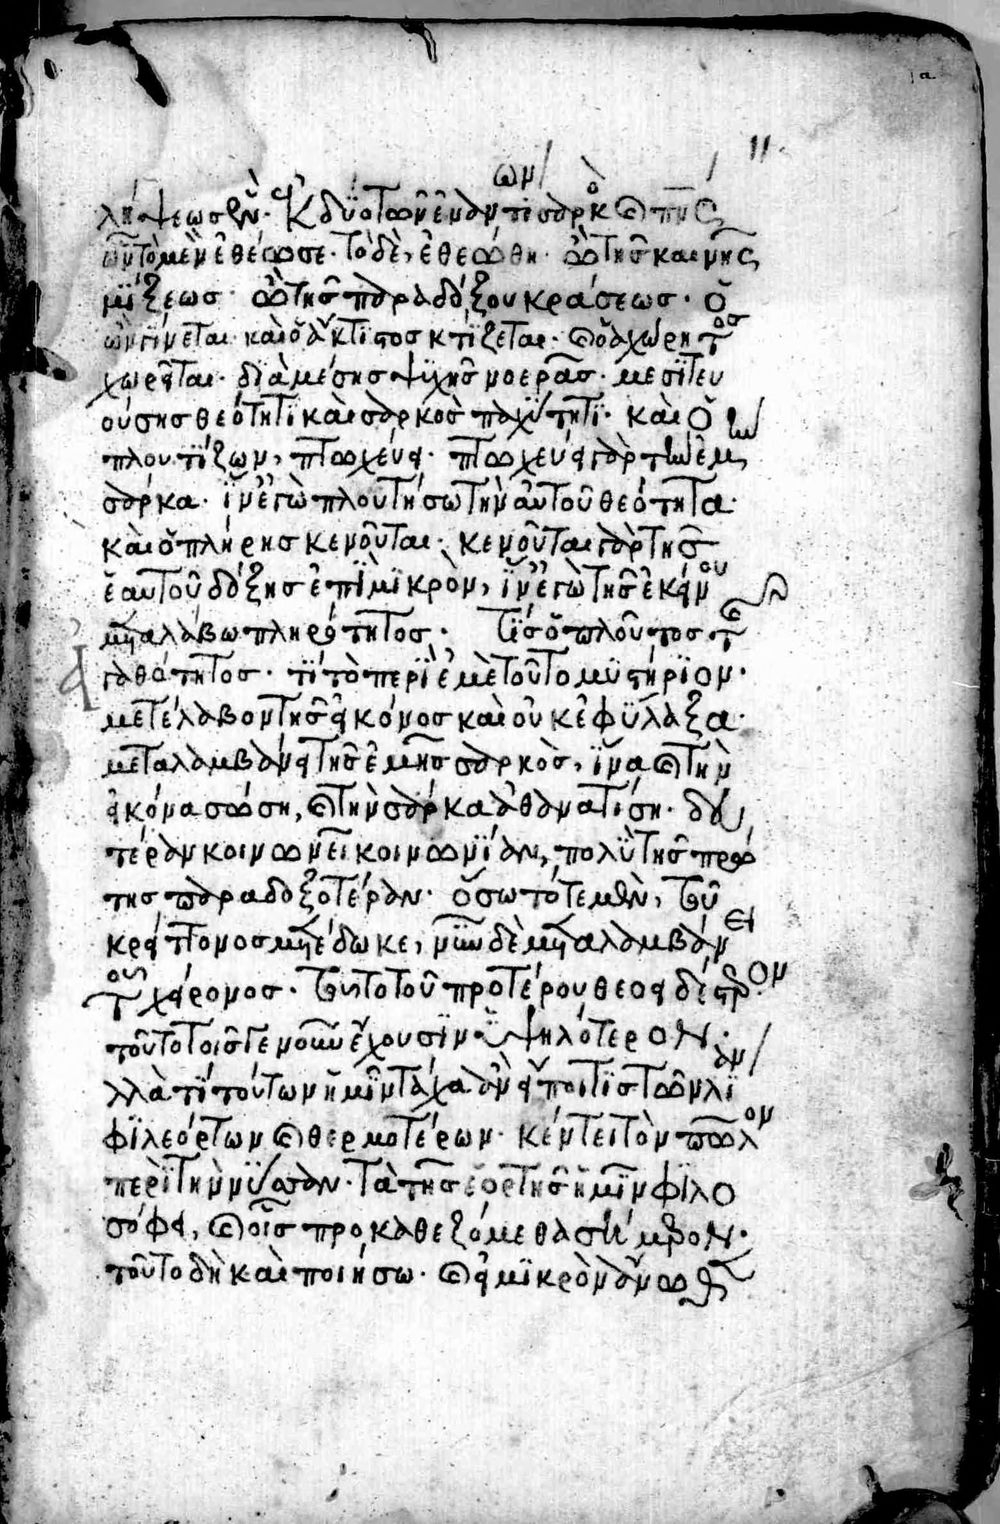 11
λήψεως ἓν· ἐκ δύο τῶν ἐναντίων σαρκὸς καὶ πνς
ὧν τὸ μὲν ἐθέωσε· τὸ δὲ, ἐθεώθη· ὢ τῆς καινῆς
μίξεως· ὢ τῆς παραδόξου κράσεως· ὁ
ὢν γίνεται· καὶ ὁ ἄκτιστος κτίζεται· καὶ ὁ ἀχώρητος
χωρεῖται· διὰ μέσης ψυχῆς νοερᾶς· μεσιτευ
ούσης θεότητι καὶ σαρκὸς παχύτητι· καὶ ὁ
πλουτίζων, πτωχεύει· πτωχεύει γὰρ τὴν ἐμὴν
σάρκα· ἵν' ἐγὼ πλουτήσω τὴν αὐτοῦ θεότητα·
καὶ ὁ πλήρης κενοῦται· κενοῦται γὰρ τῆς
ἑαυτοῦ δόξης ἐπὶ μικρὸν, ἵν' ἐγὼ τῆς ἐκείνου
μεταλάβω πληρότητος· Τίς ὁ πλοῦτος τῆς
ἀγαθότητος· τί τὸ περὶ ἐμὲ τοῦτο μυστήριον·
μετέλαβον τῆς εἰκόνος καὶ οὐκ ἐφύλαξα·
μεταλαμβάνει τῆς ἐμῆς σαρκὸς, ἵνα καὶ τὴν
εἰκόνα σώση, καὶ τὴν σάρκα ἀθανατίση· δευ
τέραν κοινωνεῖ κοινωνίαν, πολὺ τῆς πρώ
της παραδοξοτέραν· ὅσω τότε μὲν, τοῦ
κρείττονος μετέδωκε, νῦν δὲ μεταλαμβάνει
τοῦ χείρονος· τοῦτο τοῦ προτέρου θεοειδέστερον·
τοῦτο τοῖς γε νοῦν ἔχουσιν ὑψηλότερον·
ἀλλὰ τί τούτων ἡμῖν τάχα ἂν εἴποι τις τῶν λίαν
φιλεόρτων καὶ θερμοτέρων· κέντει τὸν πῶλον
περὶ τὴν νύσσαν· τὰ τῆς ἑορτῆς ἡμῖν φιλο
σόφει, καὶ οἷς προκαθεζόμεθα σήμερον·
τοῦτο δὴ καὶ ποιήσω· καὶ εἰ μικρὸν ἄνωθεν